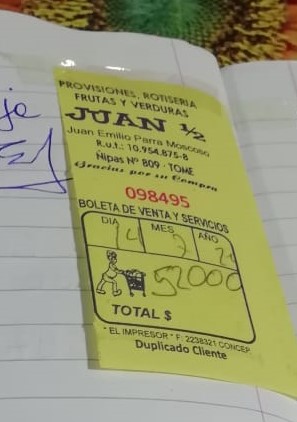 PROVISIONES, ROTISERIA
FRUTAS Y VERDURAS
JUAN ½
Juan Emilio Parra Moscoso
R.u.t.: 10.954.875-8
Ñipas Nº 809 - TOME
Gracias por su Compra
098495
BOLETA DE VENTA Y SERVICIOS
DIA MES AÑO
14 7 21
52000
TOTAL $
* EL IMPRESOR * F: 2238321 CONCEP.
Duplicado Cliente